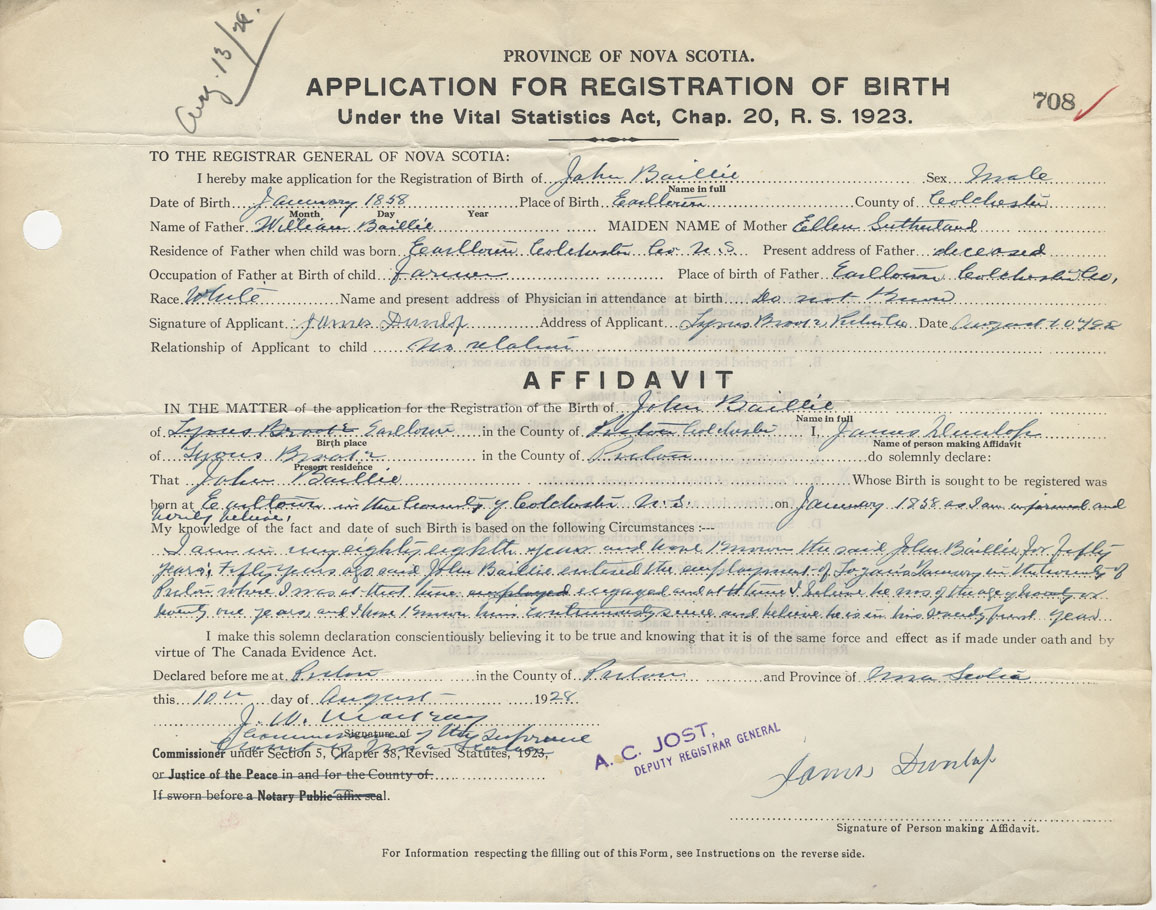 Aug. 13/28.
PROVINCE OF NOVA SCOTIA.
APPLICATION FOR REGISTRATION OF BIRTH
708
Under the Vital Statistics Act, Chap. 20, R. S. 1923.
TO THE REGISTRAR GENERAL OF NOVA SCOTIA:
I hereby make application for the Registration of Birth of John Baillie Sex Male
Name in full
Date of Birth January 1858 Place of Birth Earltown County of Colchester
Month Day Year
Name of Father William Baillie MAIDEN NAME of Mother Ellen Sutherland
Residence of Father when child was born Earltown Colchester Co. N.S. Present address of Father deceased
Occupation of Father at Birth of child farmer Place of birth of Father Earltown Colchester Co,
Race White Name and present address of Physician in attendance at birth Do not Know
Signature of Applicant James Dunlop Address of Applicant Lyons Brook, Pictou Co Date August 10th/28
Relationship of Applicant to child no relation
AFFIDAVIT
IN THE MATTER of the application for the Registration of the Birth of John Baillie
Name in full
of Lyons Brook Earltown in the County of Pictou Colchester I, James Dunlop
Birth place Name of person making Affidavit
of Lyons Brook in the County of Pictou do solemnly declare:
Present residence
That John Baillie Whose Birth is sought to be registered was
born at Earltown in the County of Colchester N.S. on January 1858 as I am informed and
verily believe,
My knowledge of the fact and date of such Birth is based on the following Circumstances :---
I am in my eighty eighth year and have Known the said John Baillie for fifty
years, Fifty years ago said John Baillie entered the employment of Logan's Tannery in the County of
Pictou where I was at that time employed engaged and at that time I believe he was of the age of twenty or
twenty one years, and I have Known him continuously since and believe he is in his seventy first year
I make this solemn declaration conscientiously believing it to be true and knowing that it is of the same force and effect as if made under oath and by
virtue of The Canada Evidence Act.
Declared before me at Pictou in the County of Pictou and Province of Nova Scotia
this 10th day of August 1928.
J. W.
Signature of
A Commissioner of the Supreme
Court of Nova Scotia
Commissioner under Section 5, Chapter 38, Revised Statutes, 1923,
or Justice of the Peace in and for the County of
If sworn before a Notary Public affix seal.
A. C. JOST,
DEPUTY REGISTRAR GENERAL
James Dunlop
Signature of Person making Affidavit.
For Information respecting the filling out of this Form, see Instructions on the reverse side.